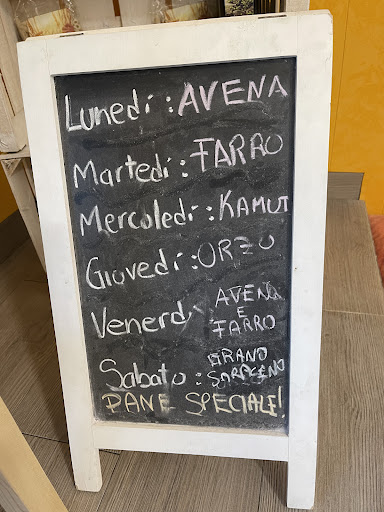 Lunedí: AVENA
Martedí: FARRO
Mercoledí: KAMUT
Giovedí: ORZO
Venerdí AVENA
E
FARRO
Sabato: GRANO
SARACENO
PANE SPECIALE!